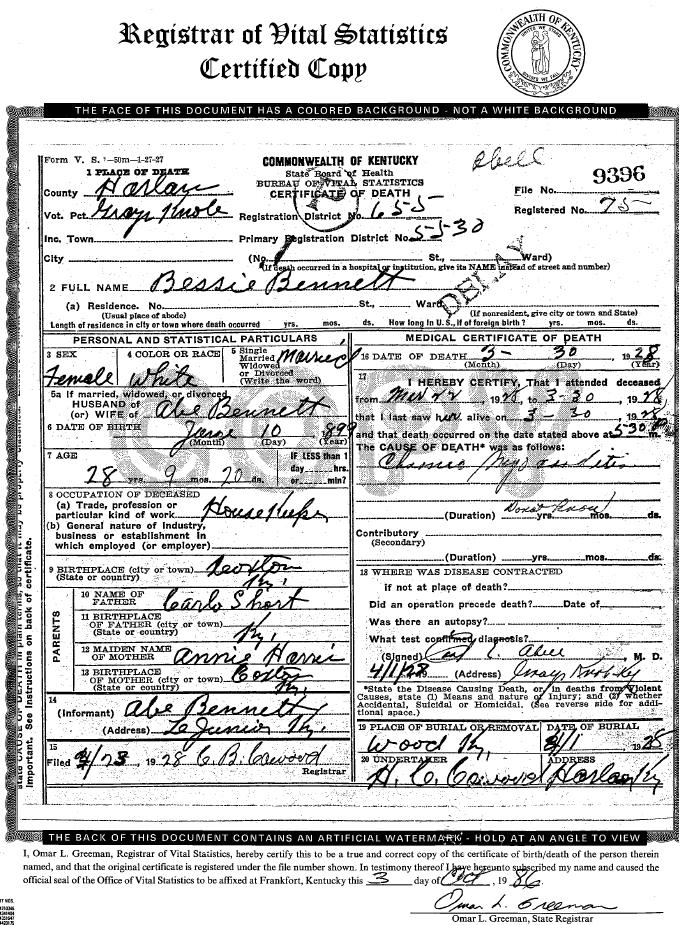 Registrar of Vital Statistics
Certified Copy
COMMONWEALTH OF KENTUCKY
UNITED WE STAND
DIVIDED WE FALL
THE FACE OF THIS DOCUMENT HAS A COLORED BACKGROUND - NOT A WHITE BACKGROUND
Form V. S. 1—50m—1-27-27
COMMONWEALTH OF KENTUCKY
State Board of Health
BUREAU OF VITAL STATISTICS
CERTIFICATE OF DEATH
Abell
File No. 9396
Registered No. 75
1 PLACE OF DEATH
County Harlan
Vot. Pct. Grays Knole
Registration District No. 655
Inc. Town
Primary Registration District No. 5530
City (No. St., Ward)
(If death occurred in a hospital or institution, give its NAME instead of street and number)
DELAY
2 FULL NAME Bessie Bennett
(a) Residence. No. St., Ward
(Usual place of abode) (If nonresident, give city or town and State)
Length of residence in city or town where death occurred yrs. mos. ds. How long in U.S., if of foreign birth? yrs. mos. ds.
PERSONAL AND STATISTICAL PARTICULARS
3 SEX Female
4 COLOR OR RACE White
5 Single Married Widowed or Divorced (Write the word) Married
5a If married, widowed, or divorced
HUSBAND of
(or) WIFE of Abe Bennett
6 DATE OF BIRTH June 10 899
(Month) (Day) (Year)
7 AGE
28 yrs. 9 mos. 20 ds.
IF LESS than 1 day hrs. or min?
8 OCCUPATION OF DECEASED
(a) Trade, profession or particular kind of work House Keeper
(b) General nature of industry, business or establishment in which employed (or employer)
9 BIRTHPLACE (city or town)
(State or country) Ky.
PARENTS
10 NAME OF FATHER Carlo Short
11 BIRTHPLACE OF FATHER (city or town)
(State or country) Ky.
12 MAIDEN NAME OF MOTHER Annie Harris
13 BIRTHPLACE OF MOTHER (city or town) Coxton
(State or country) Ky.
14 (Informant) Abe Bennett
(Address) Lejunior Ky.
15 Filed 4/23, 1928 C. B. Cawood
Registrar
MEDICAL CERTIFICATE OF DEATH
16 DATE OF DEATH 3- 30 1928
(Month) (Day) (Year)
17 I HEREBY CERTIFY, That I attended deceased
from Mar 22 1928, to 3-30, 1928
that I last saw her alive on 3-30, 1928
and that death occurred on the date stated above at 5-30 P m.
The CAUSE OF DEATH* was as follows:
Chronic Myocarditis
(Duration) Donot Know yrs. mos. ds.
Contributory
(Secondary)
(Duration) yrs. mos. ds.
18 WHERE WAS DISEASE CONTRACTED
if not at place of death?
Did an operation precede death? Date of
Was there an autopsy?
What test confirmed diagnosis?
(Signed) L. Abell, M. D.
4/1/28 (Address) Grays Knob Ky
*State the Disease Causing Death, or, in deaths from Violent Causes, state (1) Means and nature of Injury; and (2) whether Accidental, Suicidal or Homicidal. (See reverse side for additional space.)
19 PLACE OF BURIAL OR REMOVAL Wood Ky.
DATE OF BURIAL 1 1928
20 UNDERTAKER H. C. Cawood
ADDRESS Harlan Ky
state CAUSE OF DEATH in plain terms, so that it may be properly classified.
important. See instructions on back of certificate.
THE BACK OF THIS DOCUMENT CONTAINS AN ARTIFICIAL WATERMARK - HOLD AT AN ANGLE TO VIEW
I, Omar L. Greeman, Registrar of Vital Statistics, hereby certify this to be a true and correct copy of the certificate of birth/death of the person therein
named, and that the original certificate is registered under the file number shown. In testimony thereof I have hereunto subscribed my name and caused the
official seal of the Office of Vital Statistics to be affixed at Frankfort, Kentucky this 3 day of Oct, 1986.
Omar L. Greeman
Omar L. Greeman, State Registrar